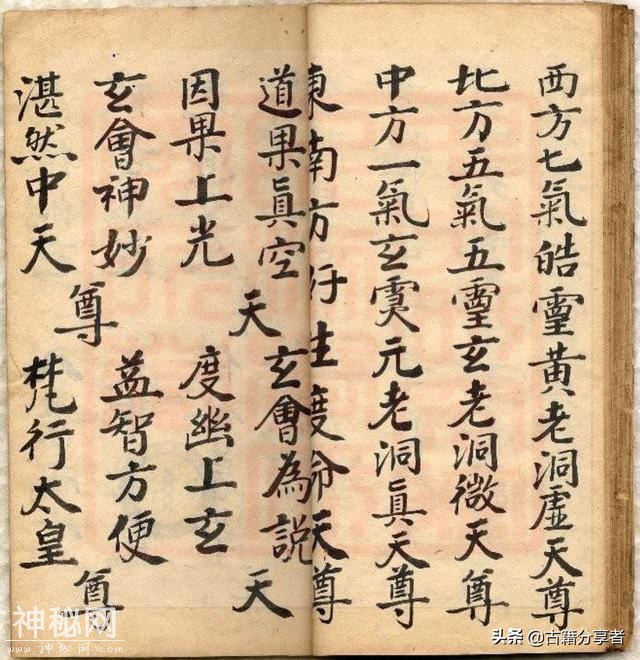 西方七氣皓靈黃老洞虛天尊
北方五氣五靈玄老洞微天尊
中方一氣玄靈元老洞眞天尊
東南方好生度命天尊
道果眞空 玄會為說
天 天
因果上光 度幽上玄
玄會神妙 益智方便
尊 尊
湛然中天 梵行太皇
神秘网
头条 @古籍分享者